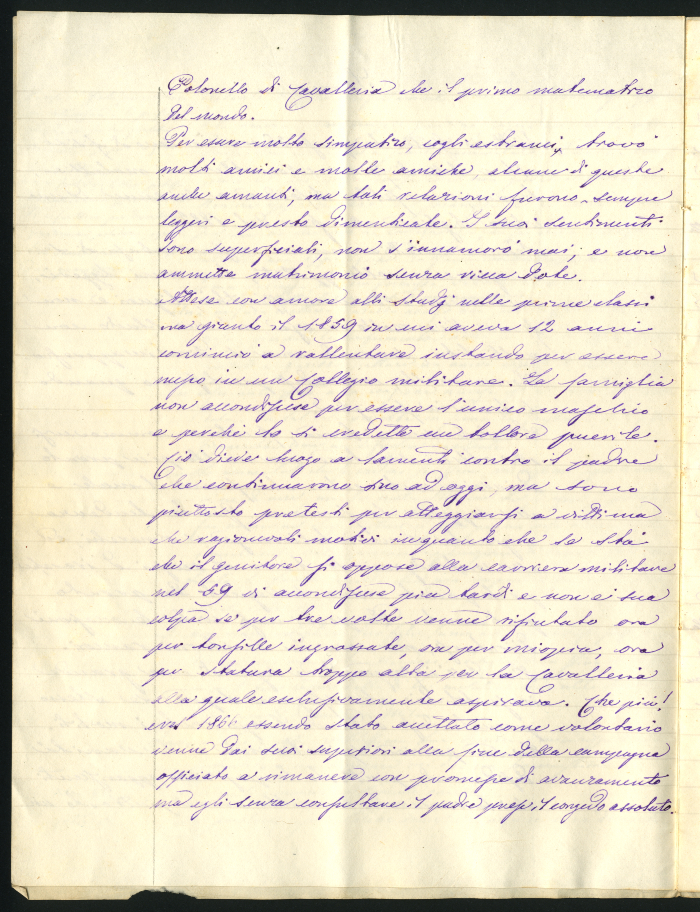 Colonello di Cavalleria che il primo matematico
del mondo.
Per essere molto simpatico, cogli estranei, trovò
molti amici e molte amiche, alcune di queste
anche amanti, ma tali relazioni furono sempre
leggeri e presto dimenticate. I suoi sentimenti
sono superficiali, non s'innamorò mai; e non
ammette matrimonio senza ricca dote.
Attese con amore alli studj nelle prime classi
ma giunto il 1859 in cui aveva 12 anni
cominciò a rallentare instando per essere
messo in un Collegio militare. La famiglia
non accondiscese per essere l'unico maschio
e perchè la si credette un bollore puerile.
Ciò diede luogo a lamenti contro il padre
che continuarono sino ad oggi, ma sono
piuttosto pretesti per atteggiarsi a vittima
che razionali motivi in quanto che se sta
che il genitore si oppose alla carriera militare
nel 59 vi accondiscese più tardi e non è sua
colpa se per tre volte venne rifiutato ora
per tonsille ingrossate, ora per miopia, ora
per statura troppo alta per la Cavalleria
alla quale esclusivamente aspirava. Che più!
1866 essendo stato accettato come volontario
venne dai suoi superiori alla fine della campagna
officiato a rimanere con promessa di avanzamento
ma egli senza consultare il padre prese il congedo assoluto.